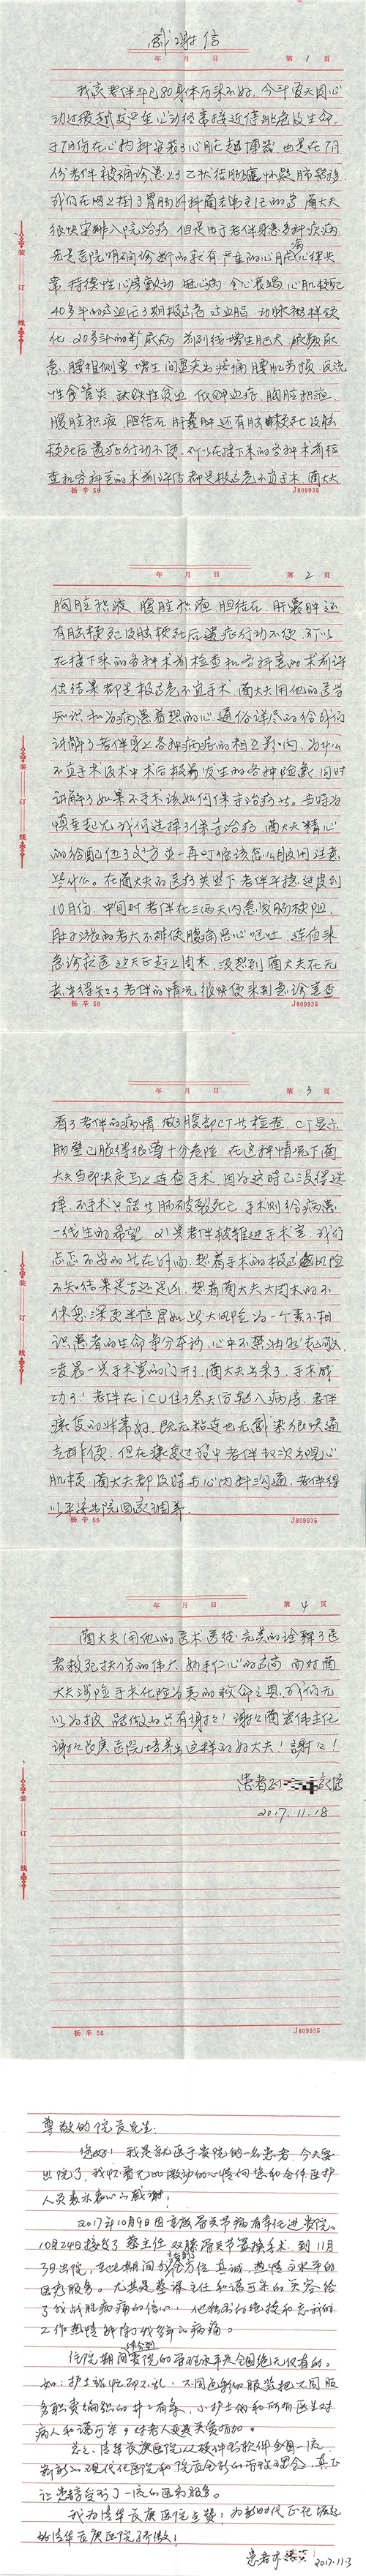 感谢信
年 月 日 第 1 页
我家老伴年已80身体历来不好，今年夏天因心
动过缓
于7月份在心内科安装了心脏起搏器 也是在7月
份老伴被确诊患上了乙状结肠癌怀疑肺转移
我们在网上挂了胃肠外科蔺宏伟主任的号 蔺大夫
很快安排入院治疗 但是由于老伴身患多种疾病
先是医院明确诊断的就有 严重的心脏病心律失
常 持续性心房颤动 冠心病 心衰 心肌梗死
40多年的高血压3期极高危 高血脂 动脉粥样硬
化 20多年的糖尿病 前列腺增生肥大 尿频尿
急 腰椎侧弯 增生 间盘突出疼痛 腰肌劳损 反流
性食管炎 缺铁性贫血 低钾血症 胸腔积液
腹腔积液 胆结石 肝囊肿 还有脑梗死及脑
梗死后遗症行动不便 所以在接下来的各种术前检
查和各科室的术前评估都是极高危不宜手术 蔺大夫
杨辛56 J809935
年 月 日 第 2 页
胸腔积液 腹腔积液 胆结石 肝囊肿还
有脑梗死及脑梗死后遗症行动不便 所以
在接下来的各种术前检查和各科室的术前评
估结果都是极高危不宜手术 蔺大夫用他的医学
知识和为病患着想的心 通俗详尽的给我们
讲解了老伴身上各种病症的相互影响 为什么
不宜手术及术中术后极易发生的各种险象 同时
讲解了如果不手术该如何保守治疗 
慎重起见我们选择了保守治疗 蔺大夫精心
的给配伍了处方并一再叮嘱该怎么服用注意
些什么。在蔺大夫的医疗关照下老伴平稳过度到
10月份 中间时老伴在三两天内急发肠梗阻
肚子涨的老大不排便腹痛恶心呕吐 连夜来
急诊就医 这天正赶上周末 没想到蔺大夫在无
意中得知了老伴的情况 很快便来到急诊室查
杨辛56 J809935
年 月 日 第 3 页
看了老伴的病情 做了腹部CT等检查 CT显示
肠壁已胀得很薄十分危险 在这种情况下蔺
大夫当即决定马上连夜手术 因为这时已没得选
择 不手术只能等肠破裂死亡 手术则给病患
一线生的希望 21点老伴被推进手术室 我们
忐忑不安的等在外面 想着手术的极高危风险
不知结果是吉还是凶 想着蔺大夫大周末的不
休息 深更半夜冒如此大风险为一个素不相
识患者的生命争分夺秒 心中不禁油然起敬
凌晨一点手术室的门开了 蔺大夫出来了 手术成
功了！老伴在ICU住了叁天后转入病房 老伴
康复的非常好 既无粘连也无感染很快通
气排便 但在康复过程中老伴数次出现心
肌梗 蔺大夫都及时与心内科沟通 老伴得
以平安出院回家调养.
杨辛56 J809935
年 月 日 第 4 页
蔺大夫用他的医术医德 完美的诠释了医
者救死扶伤的伟大 妙手仁心的高尚 面对蔺
大夫涉险手术化险为夷的救命之恩 我们无
以为报 能做的只有谢谢！谢谢蔺宏伟主任
谢谢长庚医院培养出这样的好大夫！謝謝！
患者
2017.11.18
杨辛56 J809935
尊敬的院长先生：
您好！我是就医于贵院的一名患者，今天要
出院了，我怀着无比激动的心情向您和全体医护
人员表示衷心的感谢！
2017年10月9日因重症骨关节病有幸住进贵院。
10月24日接受了蔡主任双膝骨关节置换手术，到11月
3日出院，在此期间我得到全方位、真诚、热情高水平的
医疗服务。尤其是蔡谞主任和蔼可亲的笑容给
了我战胜病痛的信心，他
工作热情
住院期间贵院的管理水平是全国绝无仅有的。
如：护士站忙而不乱，不同色彩的服装把不同服
务职责编织的井井有条，小护士们和所有医生对
病人和蔼可亲，对老人更是关爱有加。
总之，清华长庚医院从硬件到软件全国一流，
崭新的现代化医院和院长全新的管理理念，真正
让患者享受到了一流的医疗服务。
我为清华长庚医院点赞！为新时代正在崛起
的清华长庚医院骄傲！
患者李 2017.11.3
装
订
线